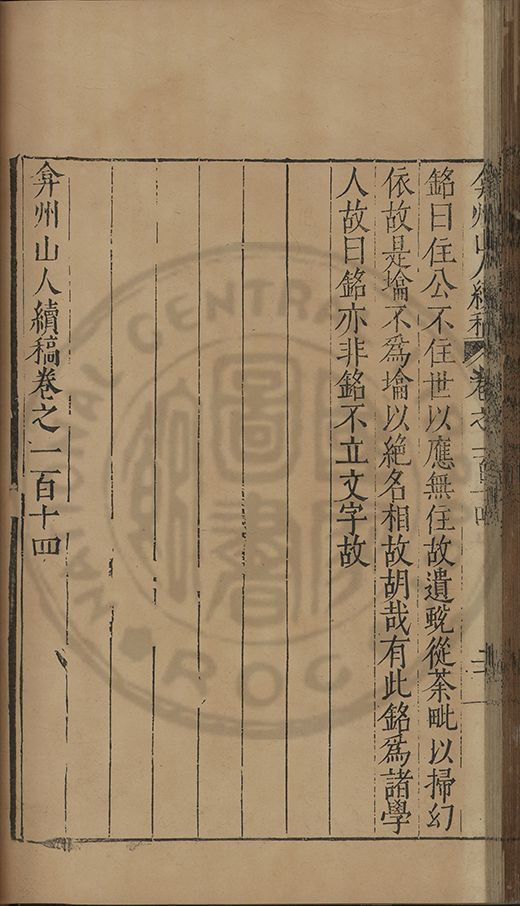 弇州山人續稿 卷之一百十四
銘曰住公不住世以應無住故遺蛻從荼毗以掃幻
依故是塔不爲塔以絶名相故胡哉有此銘爲諸學
人故曰銘亦非銘不立文字故
弇州山人續稿卷之一百十四